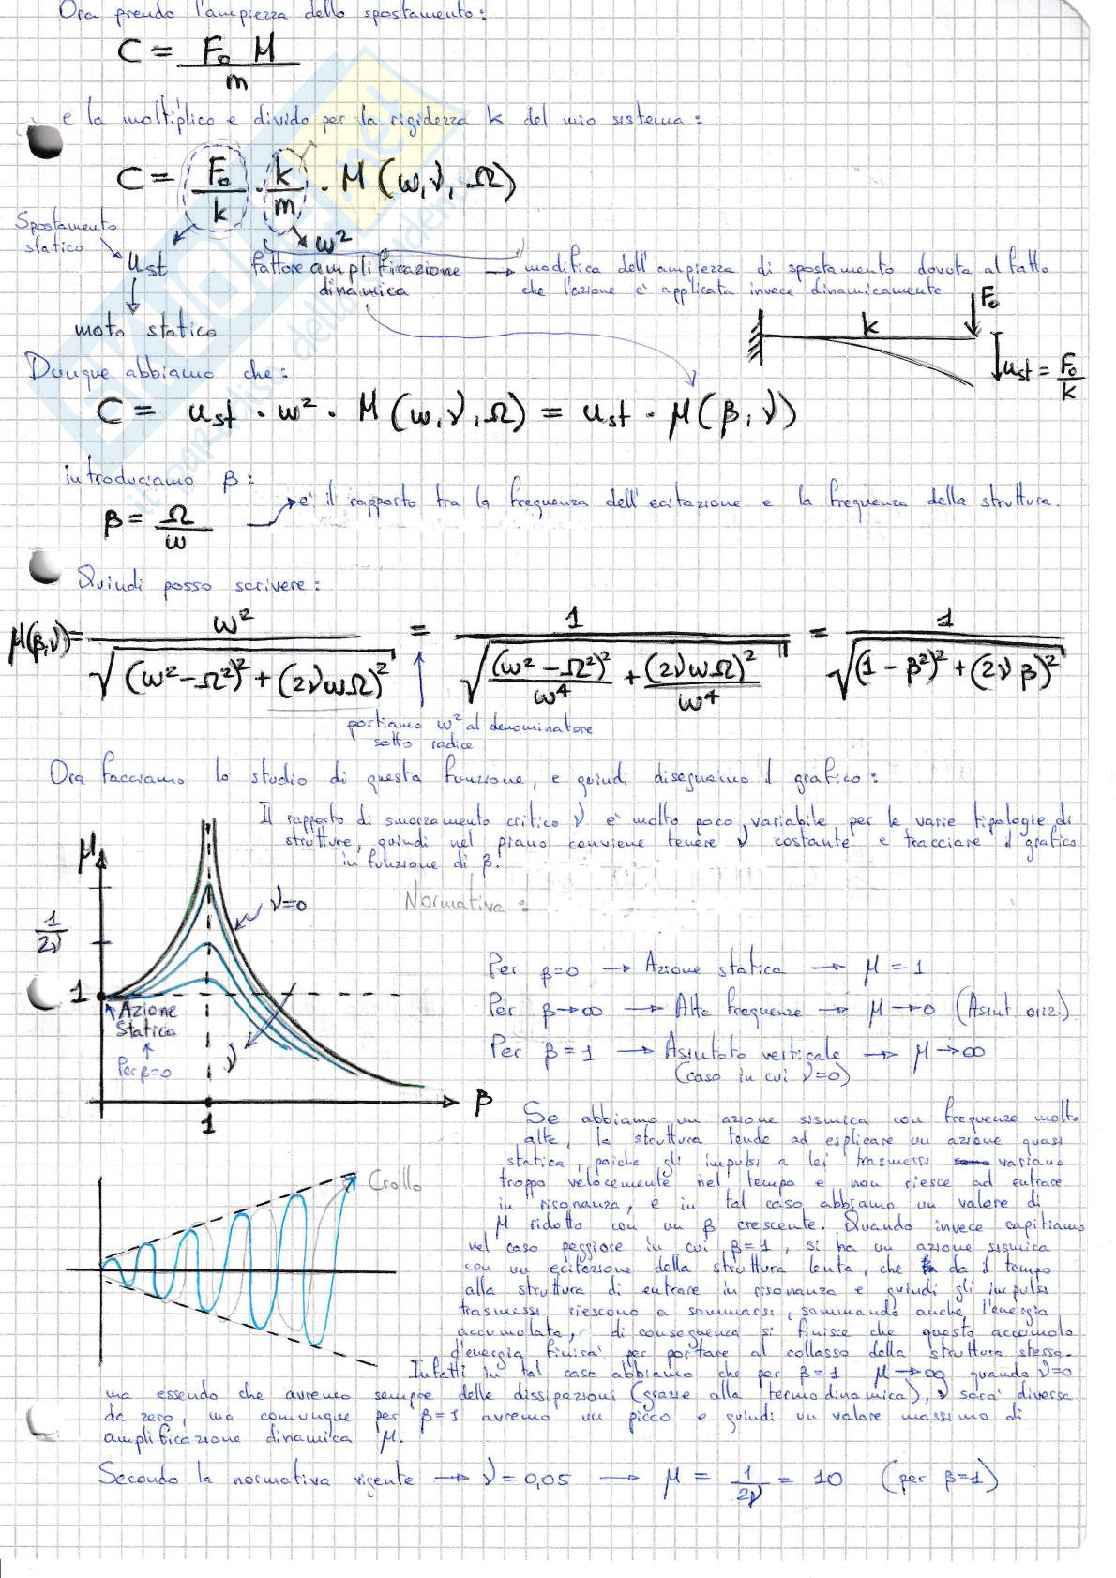 Ora prendo l'ampiezza dello spostamento:
C = F₀ M / m
e la moltiplico e divido per la rigidezza k del mio sistema:
C = F₀/k · k/m · M (ω, ν, Ω)
Spostamento statico
ω²
u_st
fattore amplificazione dinamica → modifica dell'ampiezza di spostamento dovuta al fatto
che l'azione è applicata invece dinamicamente
moto statico
F₀
k
u_st = F₀/k
Dunque abbiamo che:
C = u_st · ω² · M (ω, ν, Ω) = u_st · μ(β, ν)
introduciamo β:
β = Ω/ω
è il rapporto tra la frequenza dell'ecitazione e la frequenza della struttura.
Quindi posso scrivere:
μ(β,ν) = ω² / √((ω²-Ω²)² + (2νωΩ)²) = 1 / √((ω²-Ω²)²/ω⁴ + (2νωΩ)²/ω⁴) = 1 / √((1-β²)² + (2νβ)²)
portiamo ω² al denominatore
sotto radice
Ora facciamo lo studio di questa funzione, e quindi disegniamo il grafico:
Il rapporto di smorzamento critico ν è molto poco variabile per le varie tipologie di
strutture, quindi nel piano conviene tenere ν costante e tracciare il grafico
in funzione di β.
μ
ν=0
1/2ν
1
Azione
Statica
Per β=0
ν
β
1
Normativa:
Per β=0 → Azione statica → μ = 1
Per β→∞ → Alte frequenze → μ→0 (Asint. orizz.)
Per β=1 → Asintoto verticale → μ→∞
(caso in cui ν=0)
Crollo
Se abbiamo un azione sismica con frequenze molto
alte, la struttura tende ad esplicare un azione quasi
statica, poiche gli impulsi a lei trasmessi variano
troppo velocemente nel tempo e non riesce ad entrare
in risonanza, e in tal caso abbiamo un valore di
μ ridotto con un β crescente. Quando invece capitiamo
nel caso peggiore in cui β=1, si ha un azione sismica
con un ecitazione della struttura lenta, che da il tempo
alla struttura di entrare in risonanza e quindi gli impulsi
trasmessi riescono a sommarsi, sommando anche l'energia
accumulata, di conseguenza si finisce che questo accumolo
d'energia finira' per portare al collasso della struttura stessa.
Infatti in tal caso abbiamo che per β=1 μ→∞ quando ν=0
ma essendo che avremo sempre delle dissipazioni (grazie alla termodinamica), ν sara' diverso
da zero, ma comunque per β=1 avremo un picco e quindi un valore massimo di
amplificazione dinamica μ.
Secondo la normativa vigente → ν=0,05 → μ = 1/2ν = 10 (per β=1)